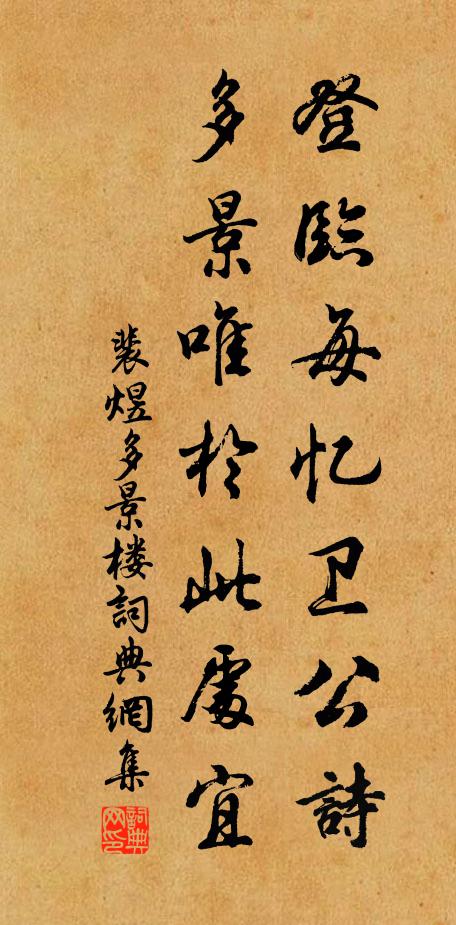 登臨每忆卫公詩
多景唯於此處宜
裴煜多景楼詞典網集
詞典網印